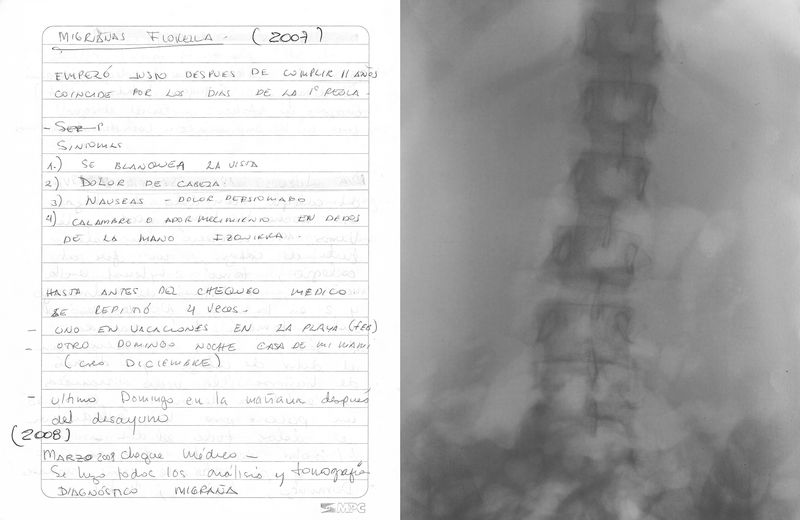 MIGRAÑAS FIORELLA - (2007)
EMPEZÓ JUSTO DESPUES DE CUMPLIR 11 AÑOS
COINCIDE POR LOS DIAS DE LA 1º REGLA -
SINTOMAS
1.) SE BLANQUEA LA VISTA
2) DOLOR DE CABEZA.
3) NAUSEAS - DOLOR
4) CALAMBRE O ADORMECIMIENTO EN DEDOS
DE LA MANO IZQUIERA -
HASTA ANTES DEL CHEQUEO MEDICO
SE REPITIÓ 4 VECES -
- UNO EN VACACIONES EN LA PLAYA (FEB)
- OTRO DOMINGO NOCHE CASA DE MI MAMI
( DICIEMBRE)
- ultimo Domingo en la mañana después
del desayuno
(2008)
MARZO 2008 cheque médico -
Se hizo todos los análisis y tomografía
DIAGNÓSTICO MIGRAÑA
MPC